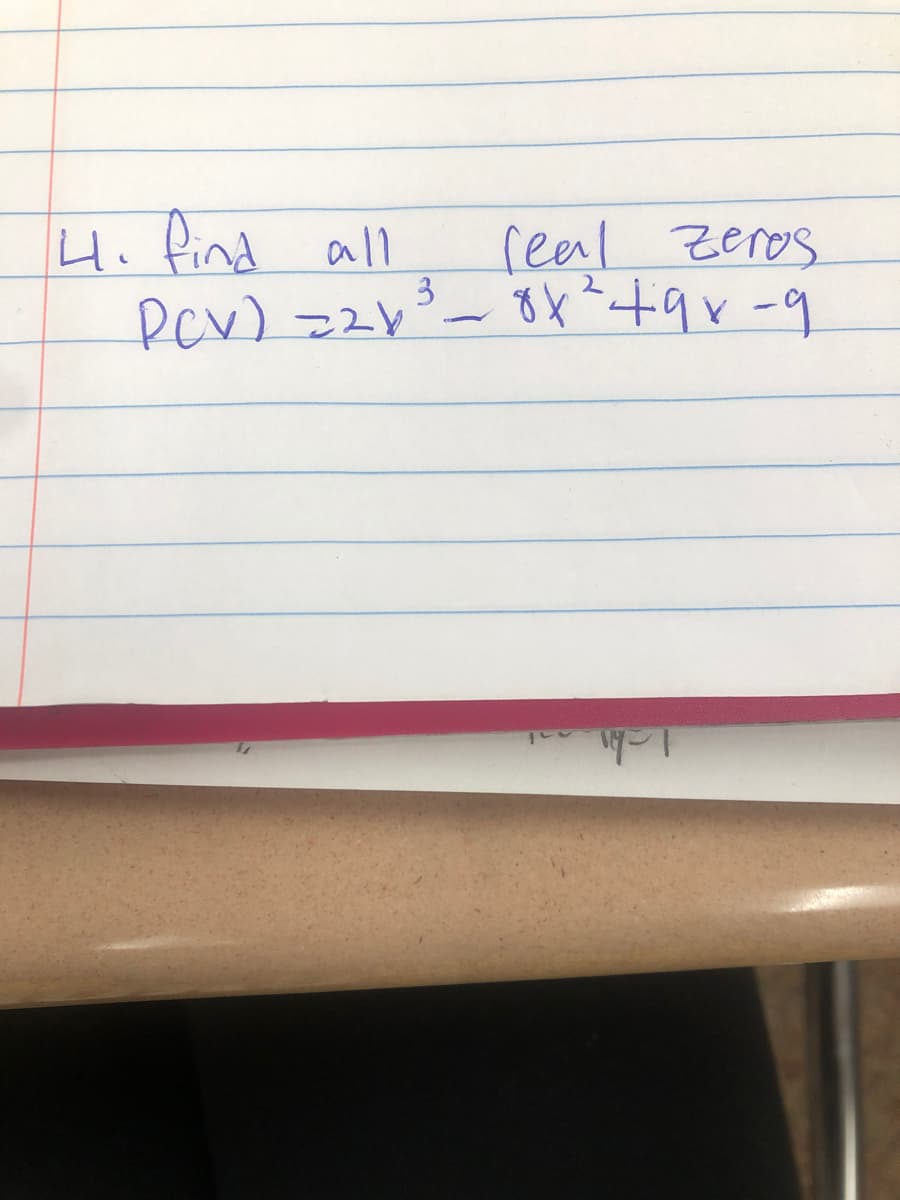 4. find all real zeros
P(x) = 2x³ - 8x² + 9x - 9